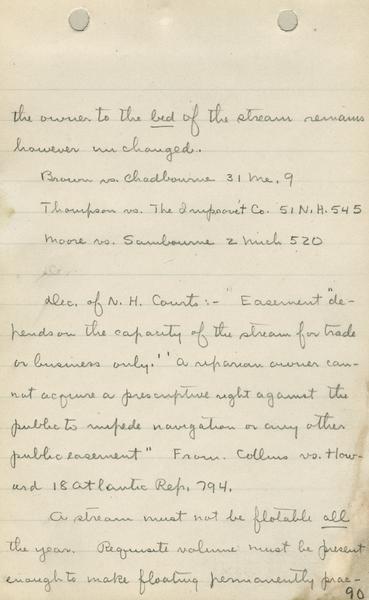 the owner to the bed of the stream remains
however unchanged.
Brown vs. Chadbourne 31 Me. 9
Thompson vs. The Improve't Co. 51 N.H. 545
Moore vs. Sambourne 2 Mich 520
Dec. of N. H. Courts:- "Easement "de-
pends on the capacity of the stream for trade
or business only.'' A riparian owner can-
not acquire a prescriptive right against the
public to impede navigation or any other
public easement" From. Collins vs. How-
ard 18 Atlantic Rep. 794.
A stream must not be flotable all
the year. Requisite volume must be present
enough to make floating permanently prac-
90